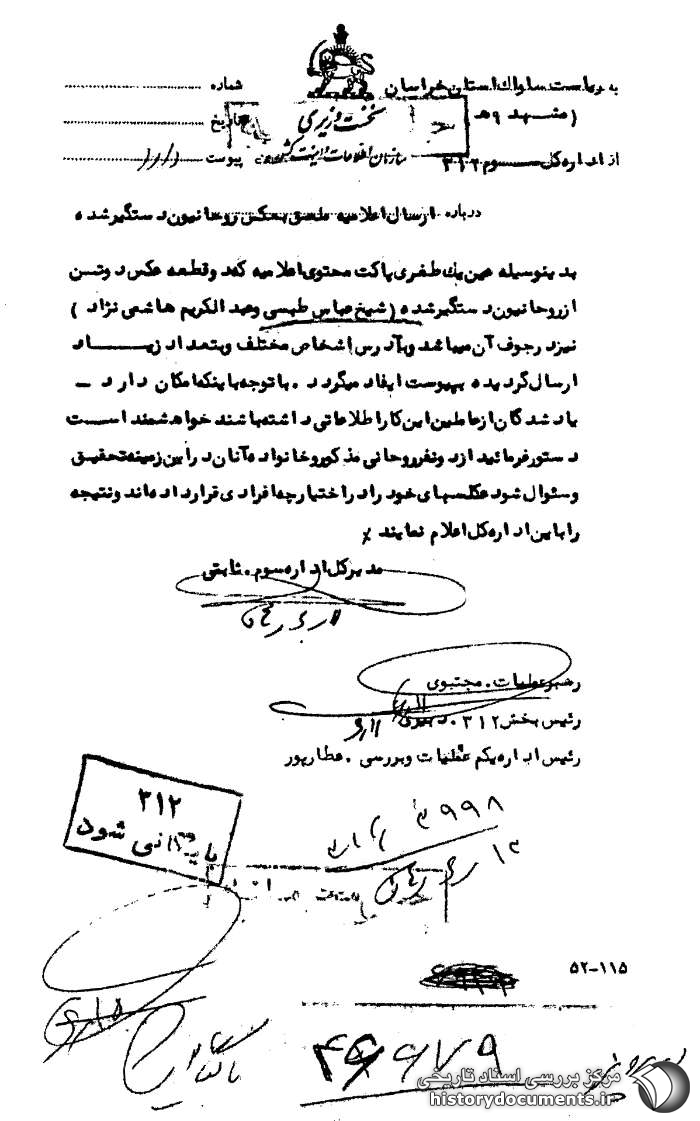 به ریاست ساواک استان خراسان
شماره
(مشهد ۹هـ
نخست وزیری
تاریخ
از اداره کل سوم ۳۱۲
سازمان اطلاعات و امنیت کشور
پیوست
درباره ارسال اعلامیه ملصق بعکس روحانیون دستگیر شده
بدینوسیله عین یک طغری پاکت محتوی اعلامیه که دو قطعه عکس دو تن
از روحانیون دستگیر شده (شیخ عباس طبسی و عبدالکریم هاشمی نژاد )
نیز در جوف آن میباشد و بآدرس اشخاص مختلف و بتعداد زیـــاد
ارسال گردیده بپیوست ایفاد میگردد . با توجه باینکه امکان دارد –
یاد شدگان از عاملین این کار اطلاعاتی داشته باشند خواهشمند اسـت
دستور فرمائید از دو نفر روحانی مذکور و خانواده آنان در این زمینه تحقیق
و سئوال شود عکسهای خود را در اختیار چه افرادی قرار داده اند و نتیجه
را باین اداره کل اعلام نمایند
مدیر کل اداره سوم . ثابتی
رهبر عملیات . مجتبوی
رئیس بخش ۳۱۲ .
رئیس اداره یکم عملیات و بررسی . عطارپور
۳۱۲
بایگانی شود
۵۲-۱۱۵
مرکز بررسی اسناد تاریخی
historydocuments.ir